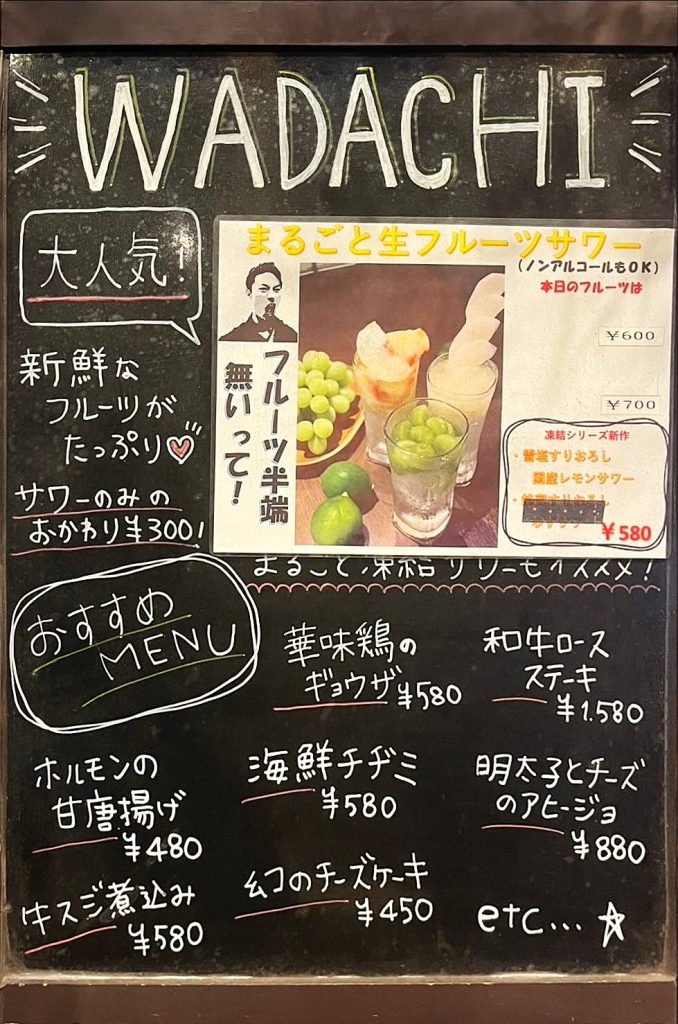 WADACHI
大人気!
新鮮な
フルーツが
たっぷり
サワーのみの
おかわり¥300!
まるごと生フルーツサワー
(ノンアルコールもOK)
本日のフルーツは
¥600
¥700
フルーツ半端
無いって!
凍結シリーズ新作
・雪塩すりおろし
国産レモンサワー
¥580
まるごと凍結サワーもオススメ!
おすすめ
MENU
華味鶏の
ギョウザ¥580
和牛ロース
ステーキ
¥1.580
ホルモンの
甘唐揚げ
¥480
海鮮チヂミ
¥580
明太子とチーズ
のアヒージョ
¥880
牛スジ煮込み
¥580
幻のチーズケーキ
¥450
etc...